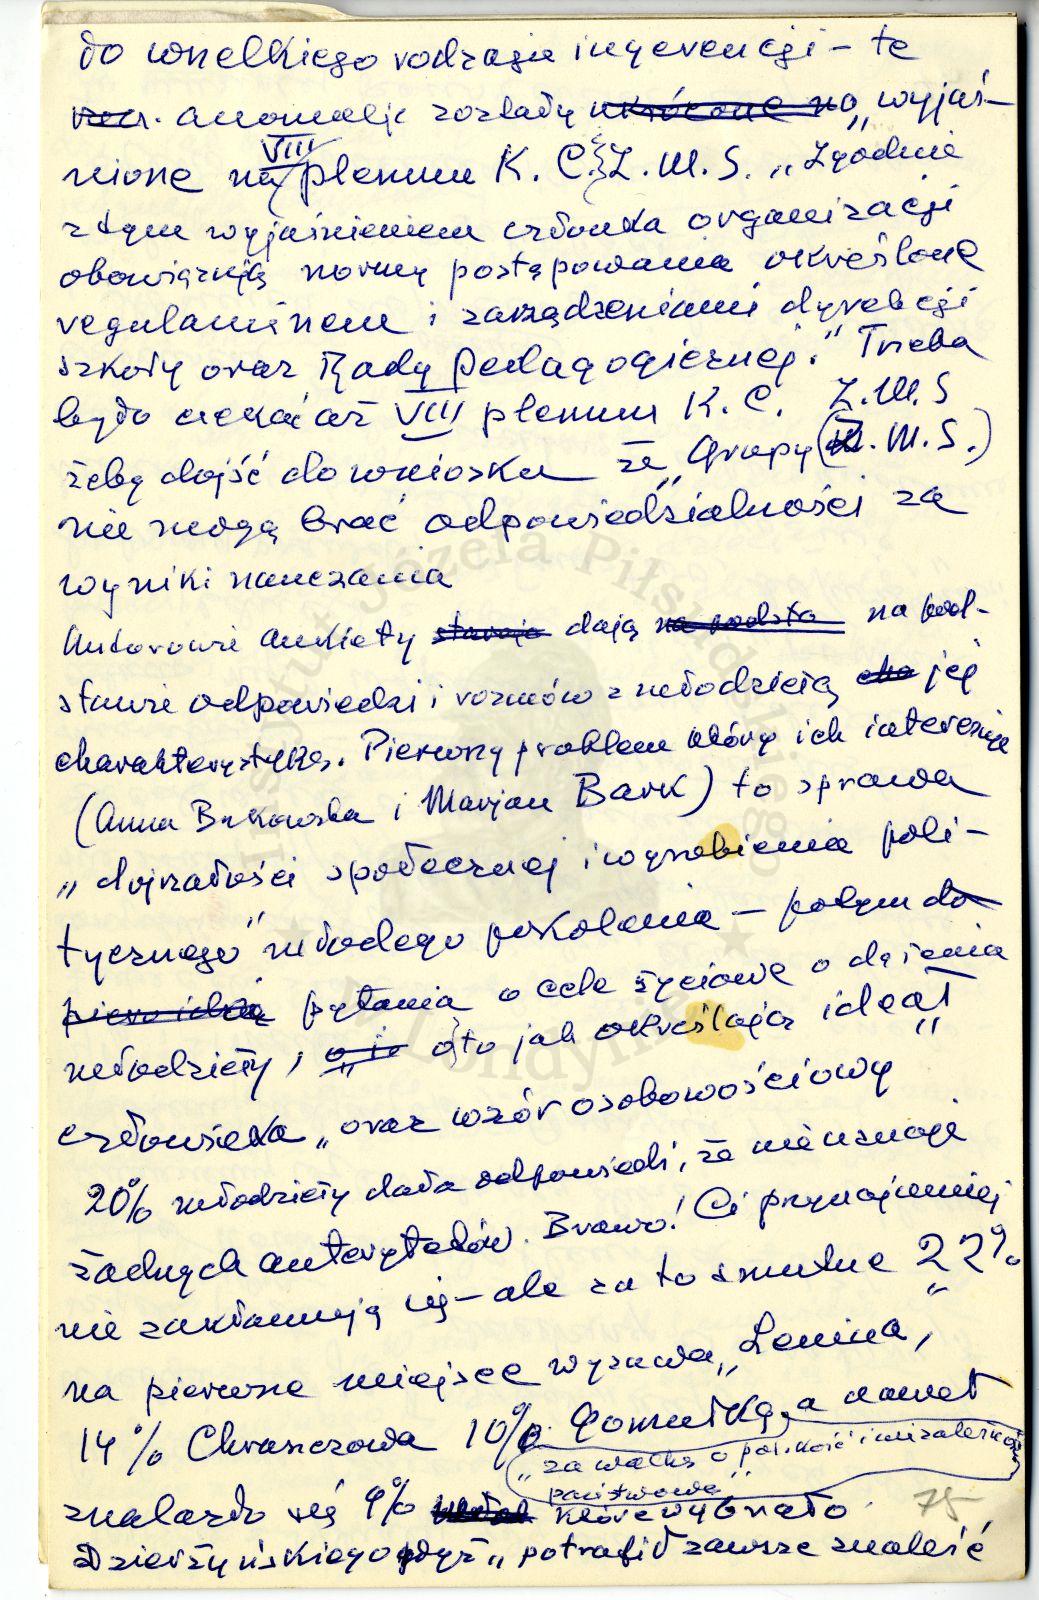 do wszelkiego rodzaju ingerencji – te
anomalje zostały ukrócone na „wyjaś-
nione na VIII plenum K. C. Z. M. S. „Zgodnie
z tym wyjaśnieniem członka organizacji
obowiązują normy postępowania określone
regulaminem i zarządzeniami dyrekcji
szkoły oraz Rady Pedagogicznej." Trzeba
było czekać aż VIII plenum K. C. Z.M.S
żeby dojść do wniosku że „Grupy (Z. M. S.)
nie mogą brać odpowiedzialności za
wyniki nauczania
Autorowie ankiety stawia dają na podsta na pod-
stawie odpowiedzi i rozmów z młodzieżą jej
charakterystykę. Pierwszy problem który ich interesuje
(Anna Bukowska i Marjan Bark) to sprawa
„dojrzałości społecznej i wyrobienia poli-
tycznego" młodego pokolenia – potym do
pytania o cele życiowe o dążenia
młodzieży, o to jak określają ideał
człowieka „oraz wzór osobowościowy
20% młodzieży dała odpowiedź, że nie uznaje
żadnych autorytetów. Brawo! Ci przynajmniej
nie zakłamują się – ale za to smutne 22%
na pierwsze miejsce wysuwa „Lenina„
14% Chruszczowa 10% Gomułkę, a nawet
„za walkę o polskość i niezależność
państwową"
znalazło się 9% które wybrało
Dzierżyńskiego gdyż „potrafił zawsze znaleść
75
Instytut Józefa Piłsudskiego
w Londynie